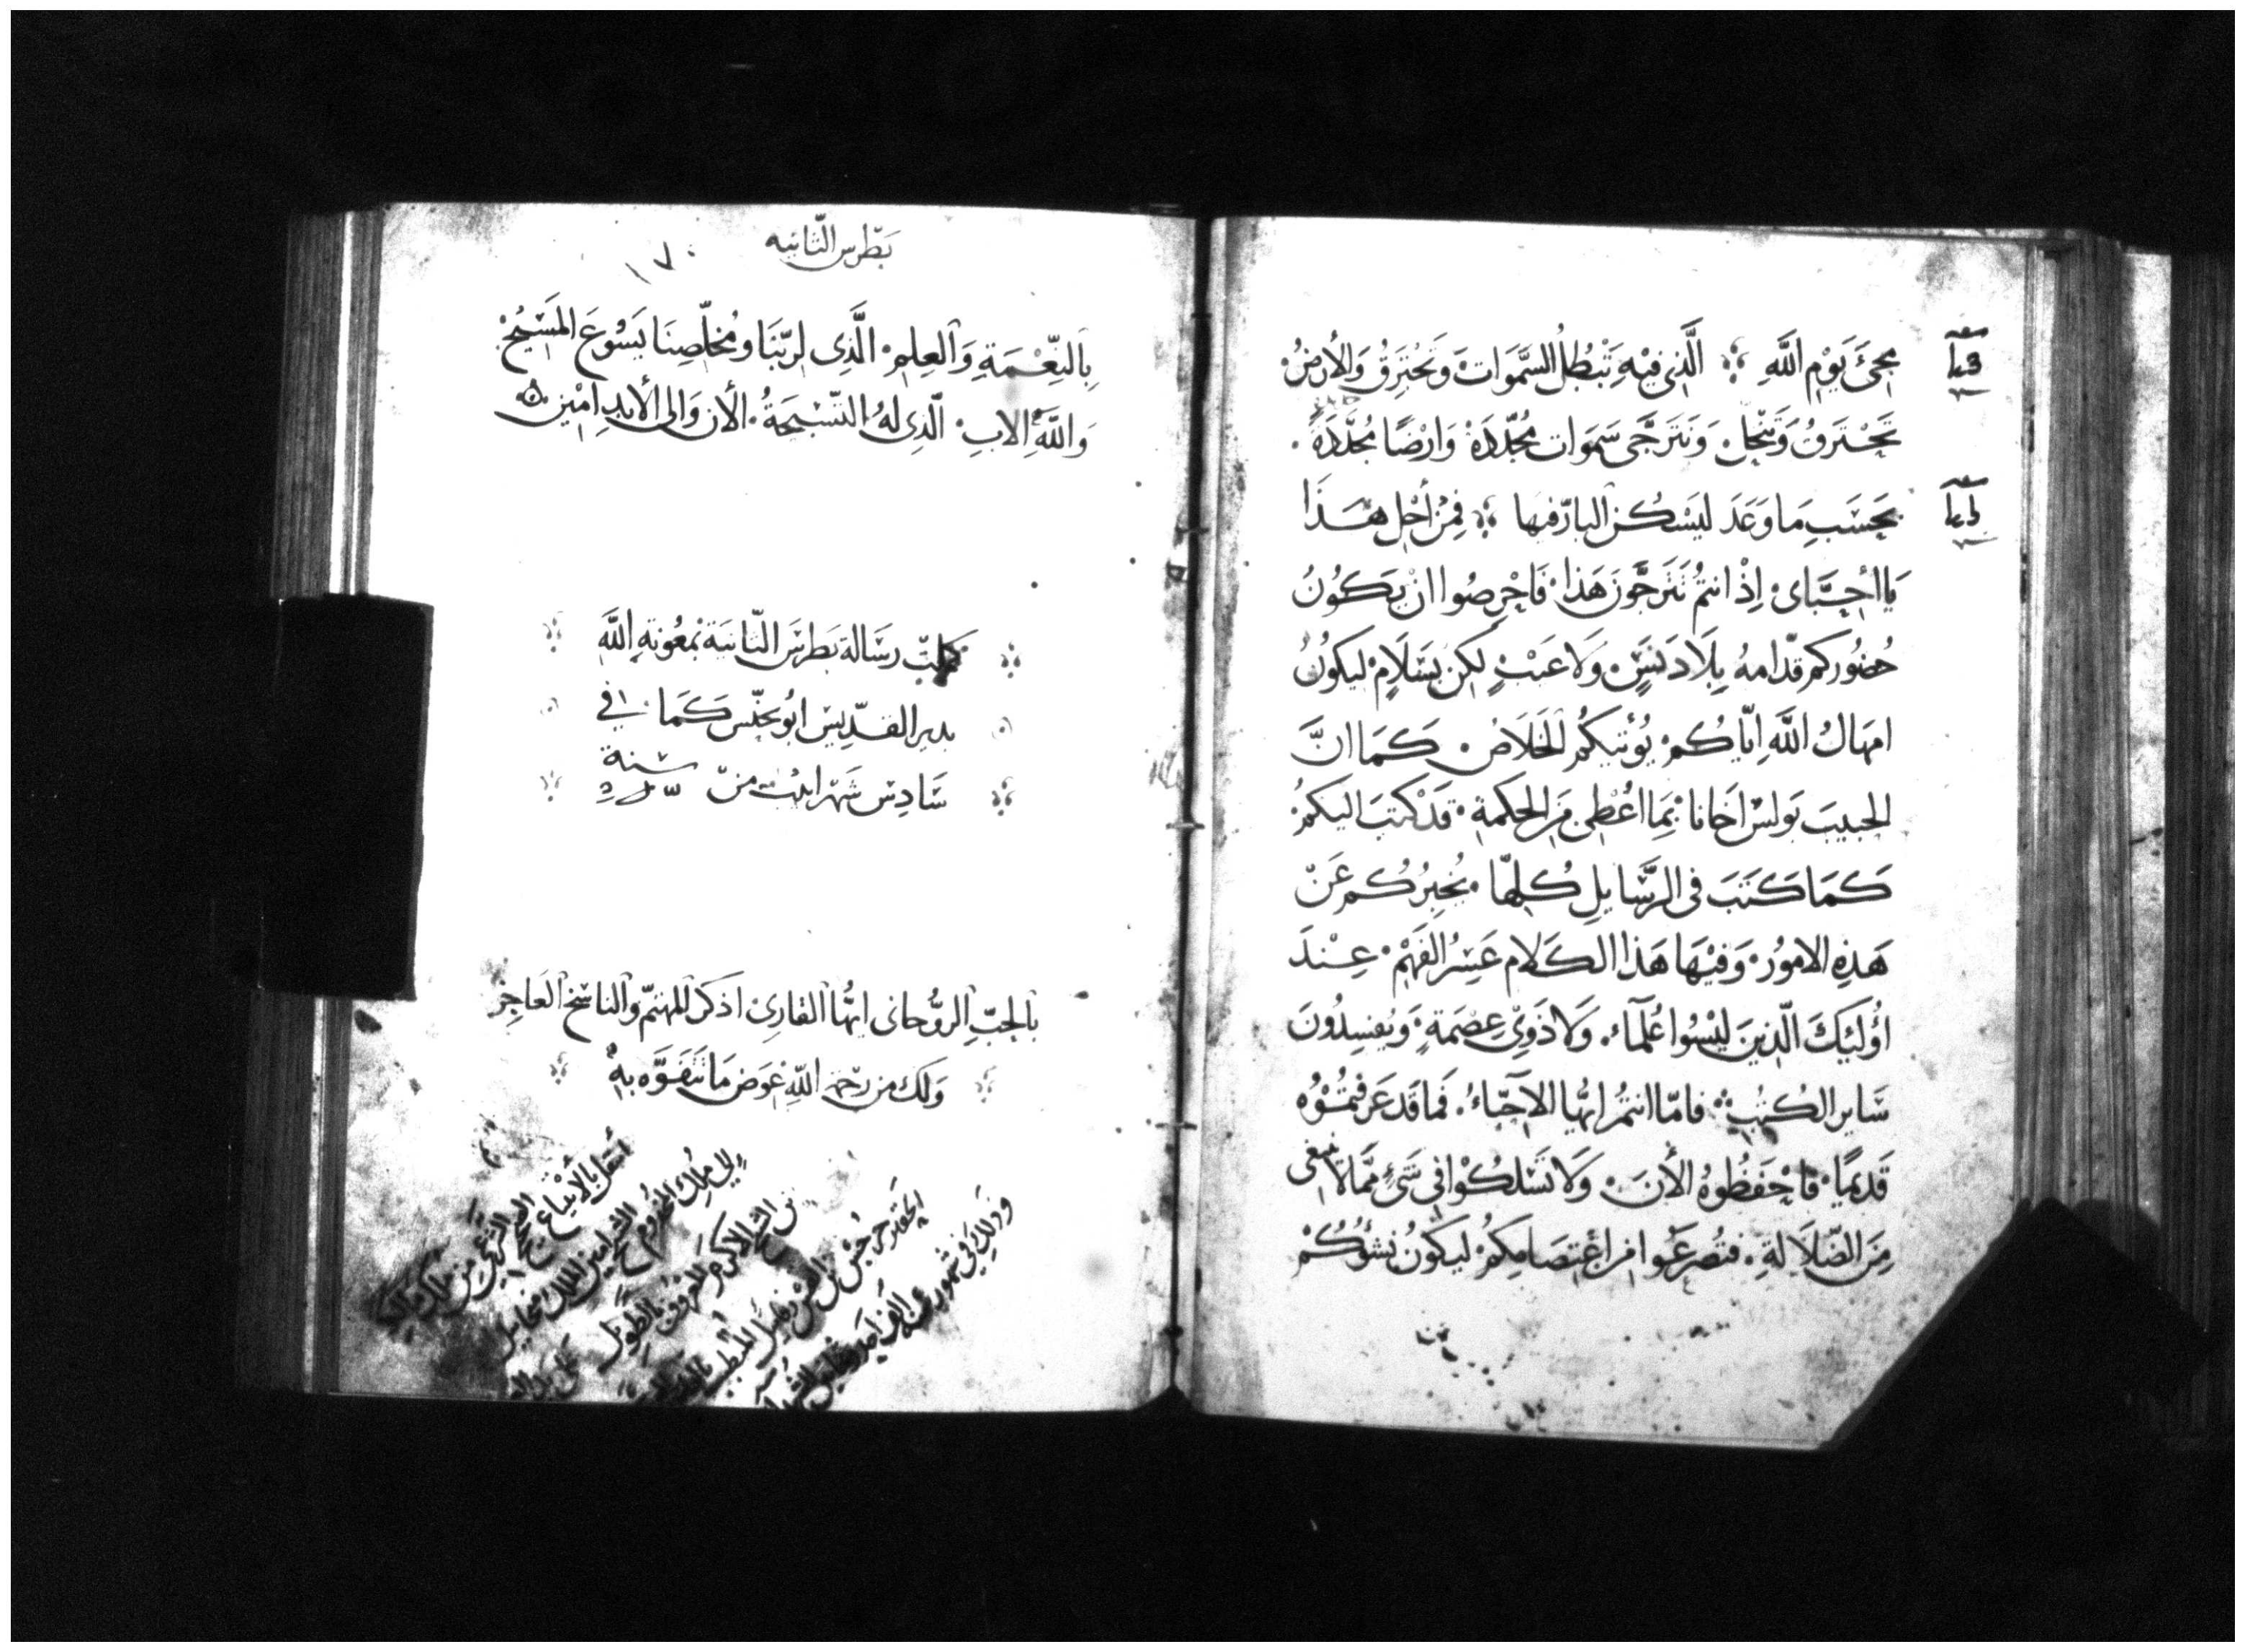 مجيَ يَوْمِ اللَّهِ ۞ الَّذِي فيْهِ تَبْطُلُ السَّمَوَاتَ وَتَحْتَرِقُ وَالأَرضُ
تَحْتَرقُ وَتَنْحَل وَنَتَرَجَّى سَمَوَات مُجَدَّدَة وَارْضًا مُجَدَّدَةً
بحَسَبِ مَا وَعَدَ ليَسْكُن البارّ فيها ۞ فَمِنْ أَجْل هَذَا
يَا احِبَّاى اِذْ انتمُ تَتَرَجَّونَ هَذا فَاحْرِصُوا انْ يَكُونُ
حُضُوركم قدّامهُ بِلَا دَنَسٍ وَلَا عَيْبٍ لكِن بسَلَامٍ ليكونُ
امهَالُ اللَّهِ اِيّاكُم يُؤتيكُمُ الخَلَاصُ كَمَا انَّ
الحبيبَ بَولسَ اخَانا بمَا اعُطِي مِنَ الحكمَةِ قَدْ كتَبَ اليكمُ
كَمَا كَتَبَ في الرَّسَايلِ كُلِهّا يُخبِرُكُم عَنْ
هَذِهِ الامُور وَفيْهَا هَذا الكَلام عَسِرُ الفَهْم عِنْدَ
اوُلَئِكَ الّذِينَ ليْسُوا عُلَمآء وَلَا ذَوِيْ عِصْمَةٍ وَيُفسِدُونَ
سَاير الكُتُبِ فامّا انتمُ ايهَّا الاَحِبّاءُ فَما قَد عَرَفتُمُوْهُ
قَديمًا فاحْفَظُوهُ الأَنَ وَلَا تَسْلكُوْا في شَيءٍ ممَّا لا ينبغى
مِنَ الضّلَالَةِ فتُصرَعُوا مِن اعْتِصَامِكمُ ليَكونُ نشؤُكُمْ
بَطْرس الثانيه
بِالنِّعْمَةِ وَالعِلِم الَّذِى لِربّنَا ومُخلّصِنَا يَسُوعَ المَسَيْحِ
وَاللَّهِ الاب الّذِى لهُ التسْبيحَةُ الأَن وَالى الأَبدِ امْين
كملت رسَالة بَطرسَ الثانيَة بمَعُونةِ اللَّه
بدير القديس ابُو يحنّس كَمَا في
سَادِس شَهْر ابيْب من سنة
بالحبِّ الروُّحاني ايهُّا القارِي اذكر المهتمّ والناسخ العَاجِز
وَلك من رحمة اللهِ عوَض مَا تَتَفَوَّه بهِ